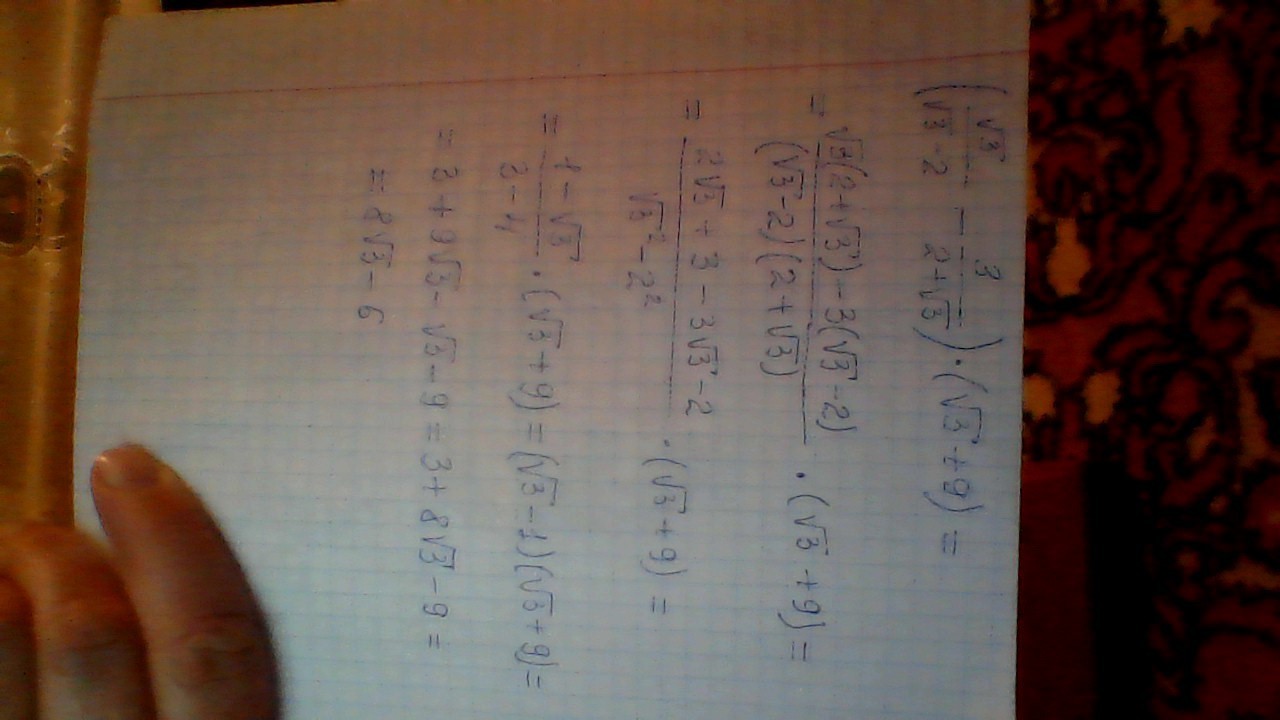 (√3/(√3-2) - 3/(2+√3)) · (√3+9) =
= (√3(2+√3)-3(√3-2))/((√3-2)(2+√3)) · (√3+9) =
= (2√3+3-3√3-2)/(√3²-2²) · (√3+9) =
= (1-√3)/(3-4) · (√3+9) = (√3-1)(√3+9) =
= 3+9√3-√3-9 = 3+8√3-9 =
= 8√3-6